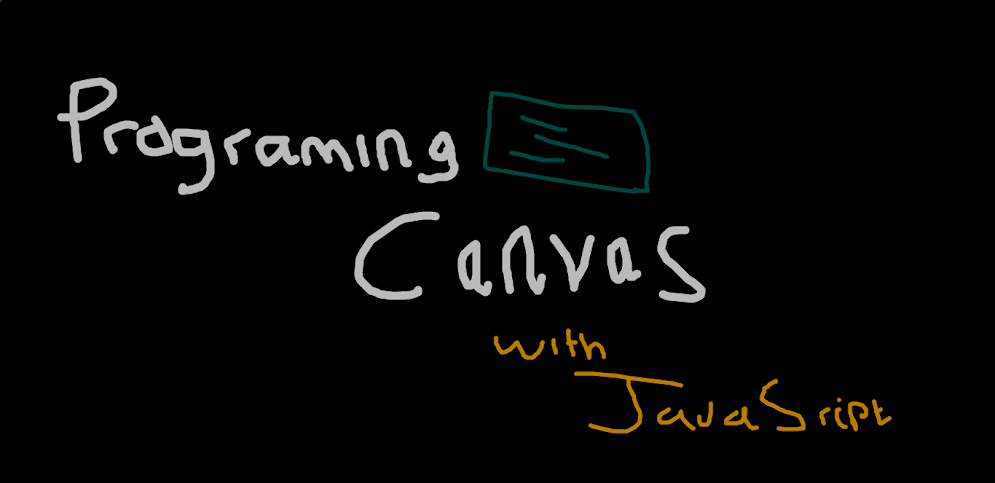 Programing
Canvas
with
JavaSript